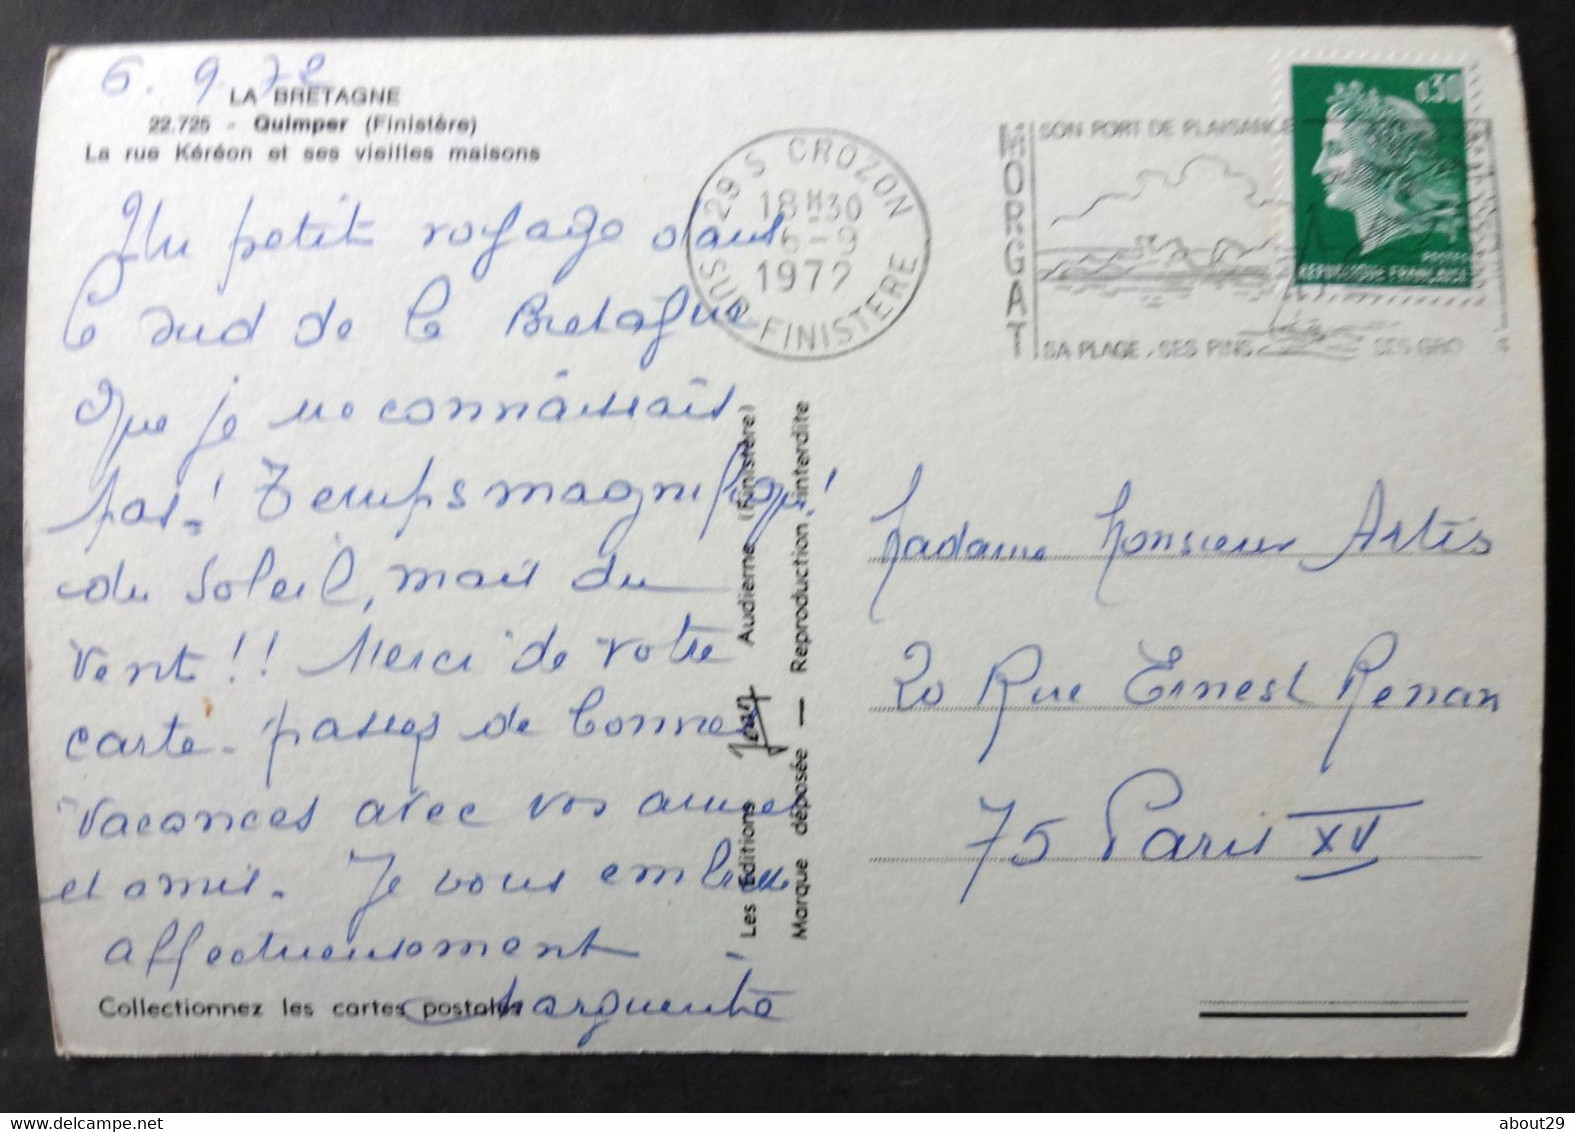 6.9.72
LA BRETAGNE
22.725 - Quimper (Finistère)
La rue Kéréon et ses vieilles maisons
Un petit voyage dans
le sud de la Bretagne
que je ne connaissais
pas! Temps magnifique!
du soleil, mais du
vent!! Merci de votre
carte. passez de bonnes
vacances avec vos
et amis. Je vous embrasse
affectueusement
Marguerite
Collectionnez les cartes postales
Les Editions Jean Audierne (Finistère)
Marque déposée — Reproduction interdite
29 S CROZON
18H30
6-9
1972
SUD-FINISTERE
MORGAT
SON PORT DE PLAISANCE
SA PLAGE . SES PINS
SES GRO
0,30
POSTES
REPUBLIQUE FRANÇAISE
Madame Monsieur Artis
20 Rue Ernest Renan
75 Paris XV
about29